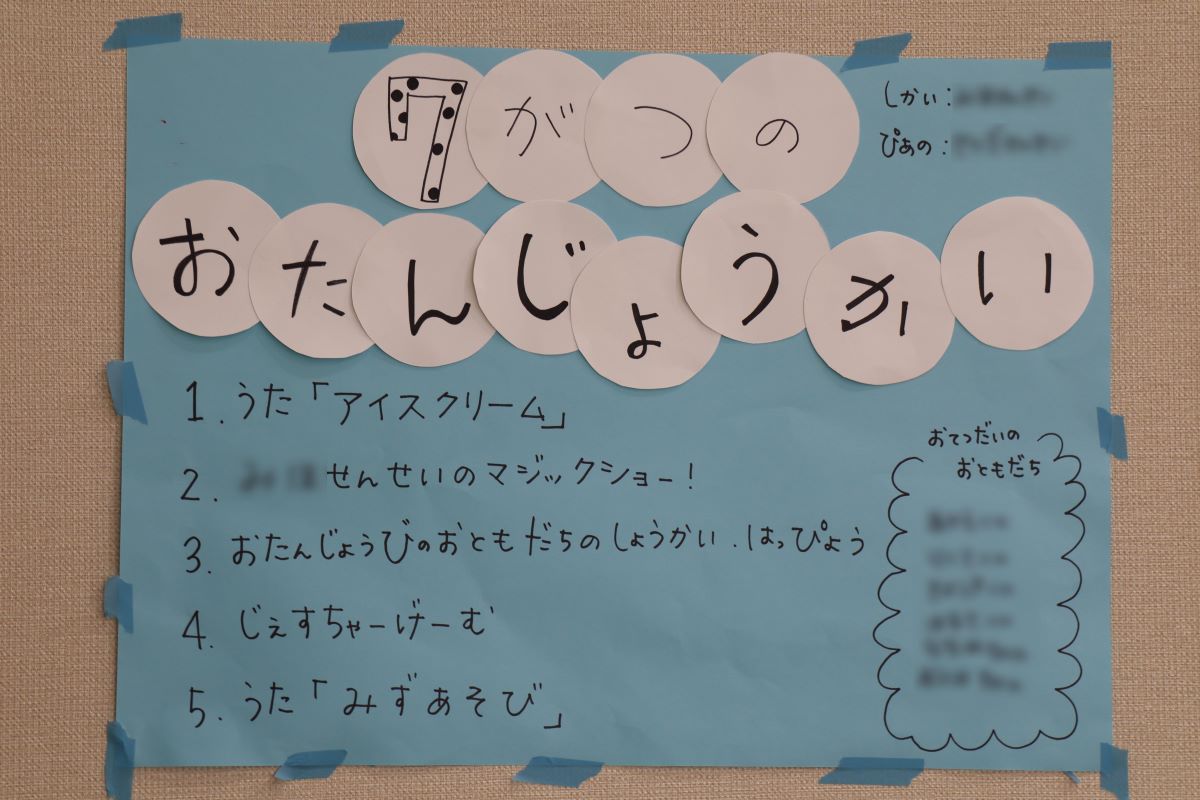 7がつの
おたんじょうかい
しかい:
ぴあの:
1.うた「アイスクリーム」
2. せんせいのマジックショー!
3.おたんじょうびのおともだちのしょうかい.はっぴょう
4.じぇすちゃーげーむ
5.うた「みずあそび」
おてつだいの
おともだち